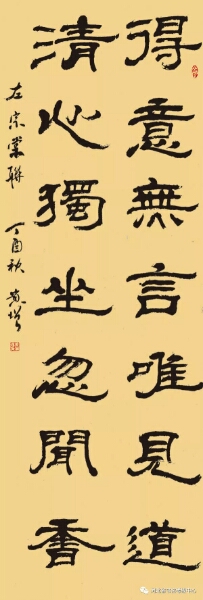 得意無言唯見道
清心獨坐忽聞香
左宗棠聯 丁酉秋